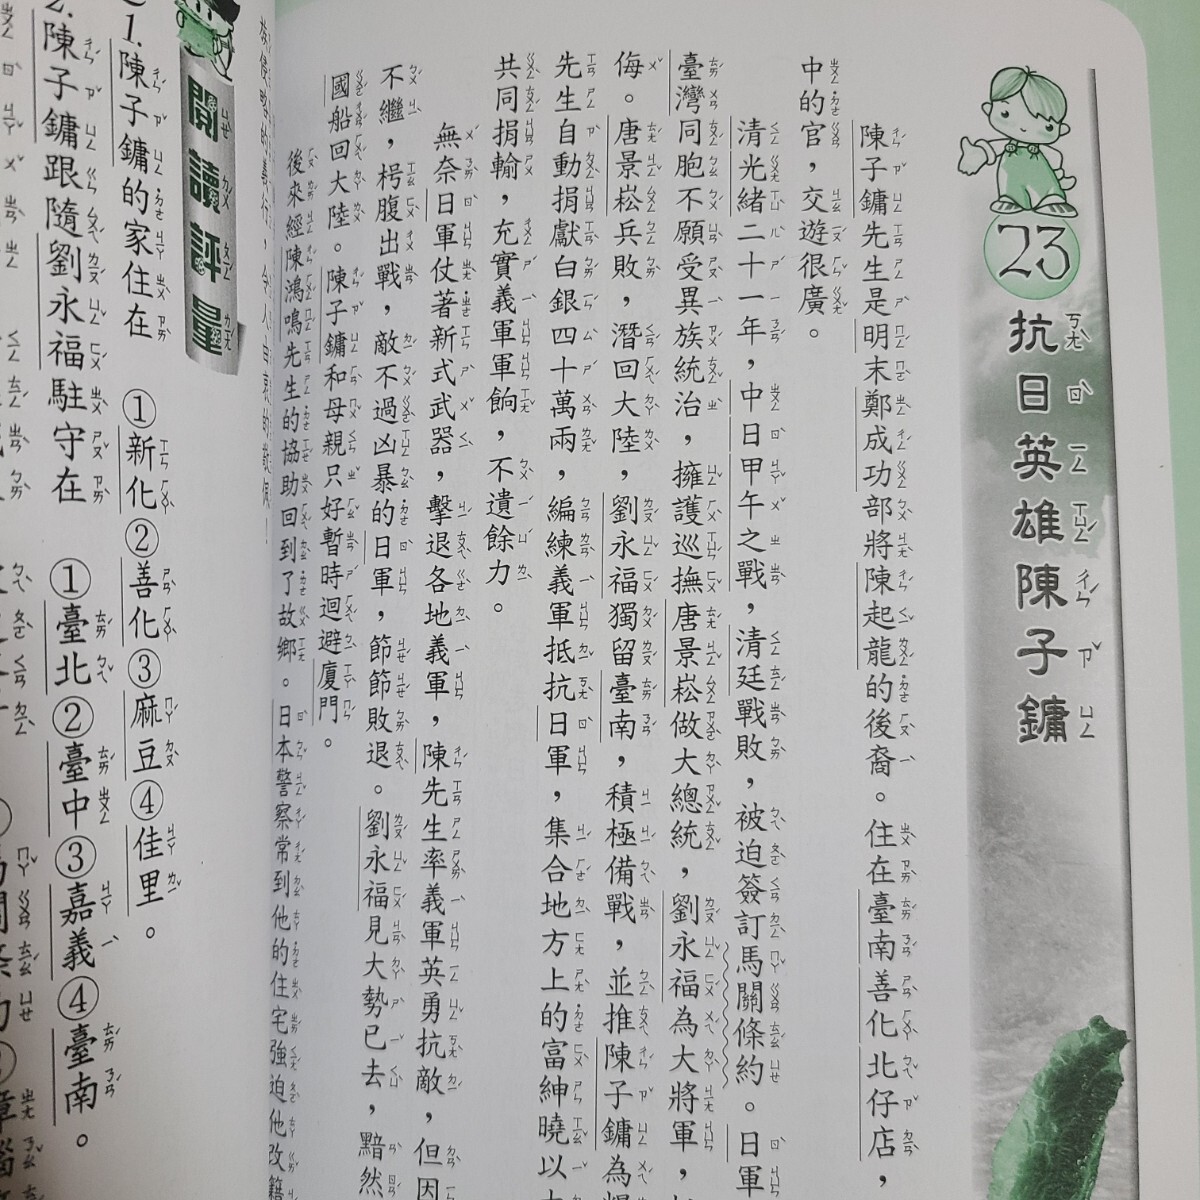 23
抗日英雄陳子鏞
陳子鏞先生是明末鄭成功部將陳起龍的後裔。住在臺南善化北仔店，
中的官，交遊很廣。
清光緒二十一年，中日甲午之戰，清廷戰敗，被迫簽訂馬關條約。日軍
臺灣同胞不願受異族統治，擁護巡撫唐景崧做大總統，劉永福為大將軍，
侮。唐景崧兵敗，潛回大陸，劉永福獨留臺南，積極備戰，並推陳子鏞為
先生自動捐獻白銀四十萬兩，編練義軍抵抗日軍，集合地方上的富紳曉以
共同捐輸，充實義軍軍餉，不遺餘力。
無奈日軍仗著新式武器，擊退各地義軍，陳先生率義軍英勇抗敵，但因
不繼，枵腹出戰，敵不過凶暴的日軍，節節敗退。劉永福見大勢已去，黯然
國船回大陸。陳子鏞和母親只好暫時迴避廈門。
後來經陳鴻鳴先生的協助回到了故鄉。日本警察常到他的住宅強迫他改籍
閱讀評量
1.陳子鏞的家住在 ①新化②善化③麻豆④佳里。
2.陳子鏞跟隨劉永福駐守在 ①臺北②臺中③嘉義④臺南。